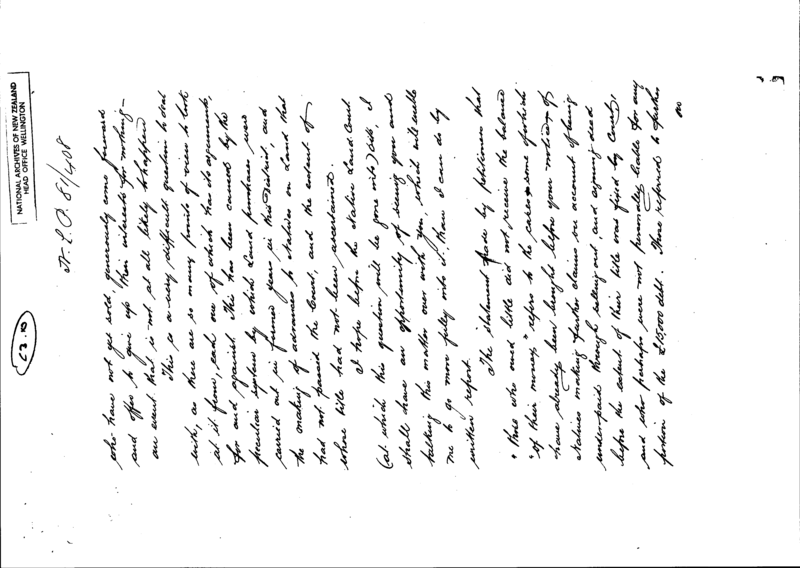 NATIONAL ARCHIVES OF NEW ZEALAND
HEAD OFFICE WELLINGTON
N.L.P. 81/408
who have not yet sold, generously come forward
and offer to give up their interests for nothing –
an event that is not at all likely to happen
This is a very difficult question to deal
with, as there are so many points of view to look
at it from, each one of which has its arguments,
for and against. This has been caused by the
peculiar system by which Land purchases were
carried out in former years in this District, and
the making of advances to Natives on Land that
had not passed the Court, and the extent of
whose title had not been ascertained.
I hope before the Native Land Court
(at which this question will be gone into) sits, I
shall have an opportunity of seeing you and
talking this matter over with you, which will enable
me to go more fully into it, than I can do by
written report.
The statement made by petitioners that
"those who owned little did not receive the balance
"of their money," refers to the cases some of which
have already been brought before your notice of
Natives making further claims on account of being
underpaid through selling out and signing deed
before the extent of their title was fixed by Court,
and who perhaps were not personally liable for any
portion of the £15000 debt. Those referred to further